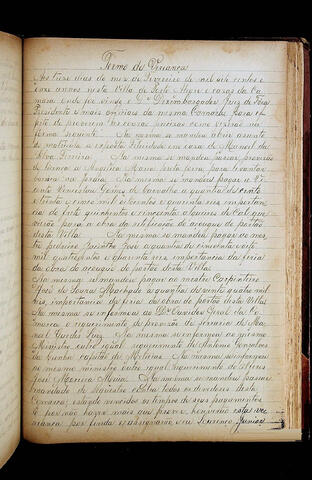 Termo de Viriança
Aos tres dias do mez de Fevereiro de mil oito centos e
onze annos nesta Villa de Porto Alegre e cazas da Ca
mara onde foi vindo o Dr. Dezembargador Juiz de Fora
Prezidente e mais officiaes da mesma Comarca para ef
feito de proverem
forma seguinte Na mesma se mandou abrir assento
de matricula a exposta Felicidade em casa de Manoel da
Silva Pereira Na mesma se mandou passar provizão
de licença a Angelica Maria preta forra para levantar
na praia. Na mesma se mandou pagar a Vi
cente Venceslau Gomes de Carvalho a quantia de cento
e trinta e cinco mil e oitocentos e quarenta reis importan
cia de sete quinhentos e cincoenta alqueires de Cal que
para a obra da do açougue do portão
desta Villa Na mesma se mandou pagar ao mes
tre pedreiro Jacintho José a quantia de cincoenta e oito
mil quatrocentos e oitenta reis importancia da feria
da obra do açougue do portão desta Villa
Na mesma se mandou pagar ao mestre Carpinteiro
José de Souza Machado a quantia de vinte quatro mil
reis, importancia da feria da obra do portão desta Villa
Na mesma se informou ao Dr. Ouvidor Geral da Co
marca o requerimento de provizão de de Ma
noel Guedes Luiz Na mesma se informou ao mesmo
Ministro outro igual requerimento de Antonio Gonçalves
da Cunha capitão de Milicias Na mesma se informou
ao mesmo ministro outro igual requerimento do Alferes
José Moreira Maia Na mesma se mandou passar
mandado de sequestro contra todos os devedores desta
Comarca; estando vencidos os tempos de seus pagamentos
E por não haver mais que prover, houverão esta ve
riança por finda e assignarão eu Lourenço Junior